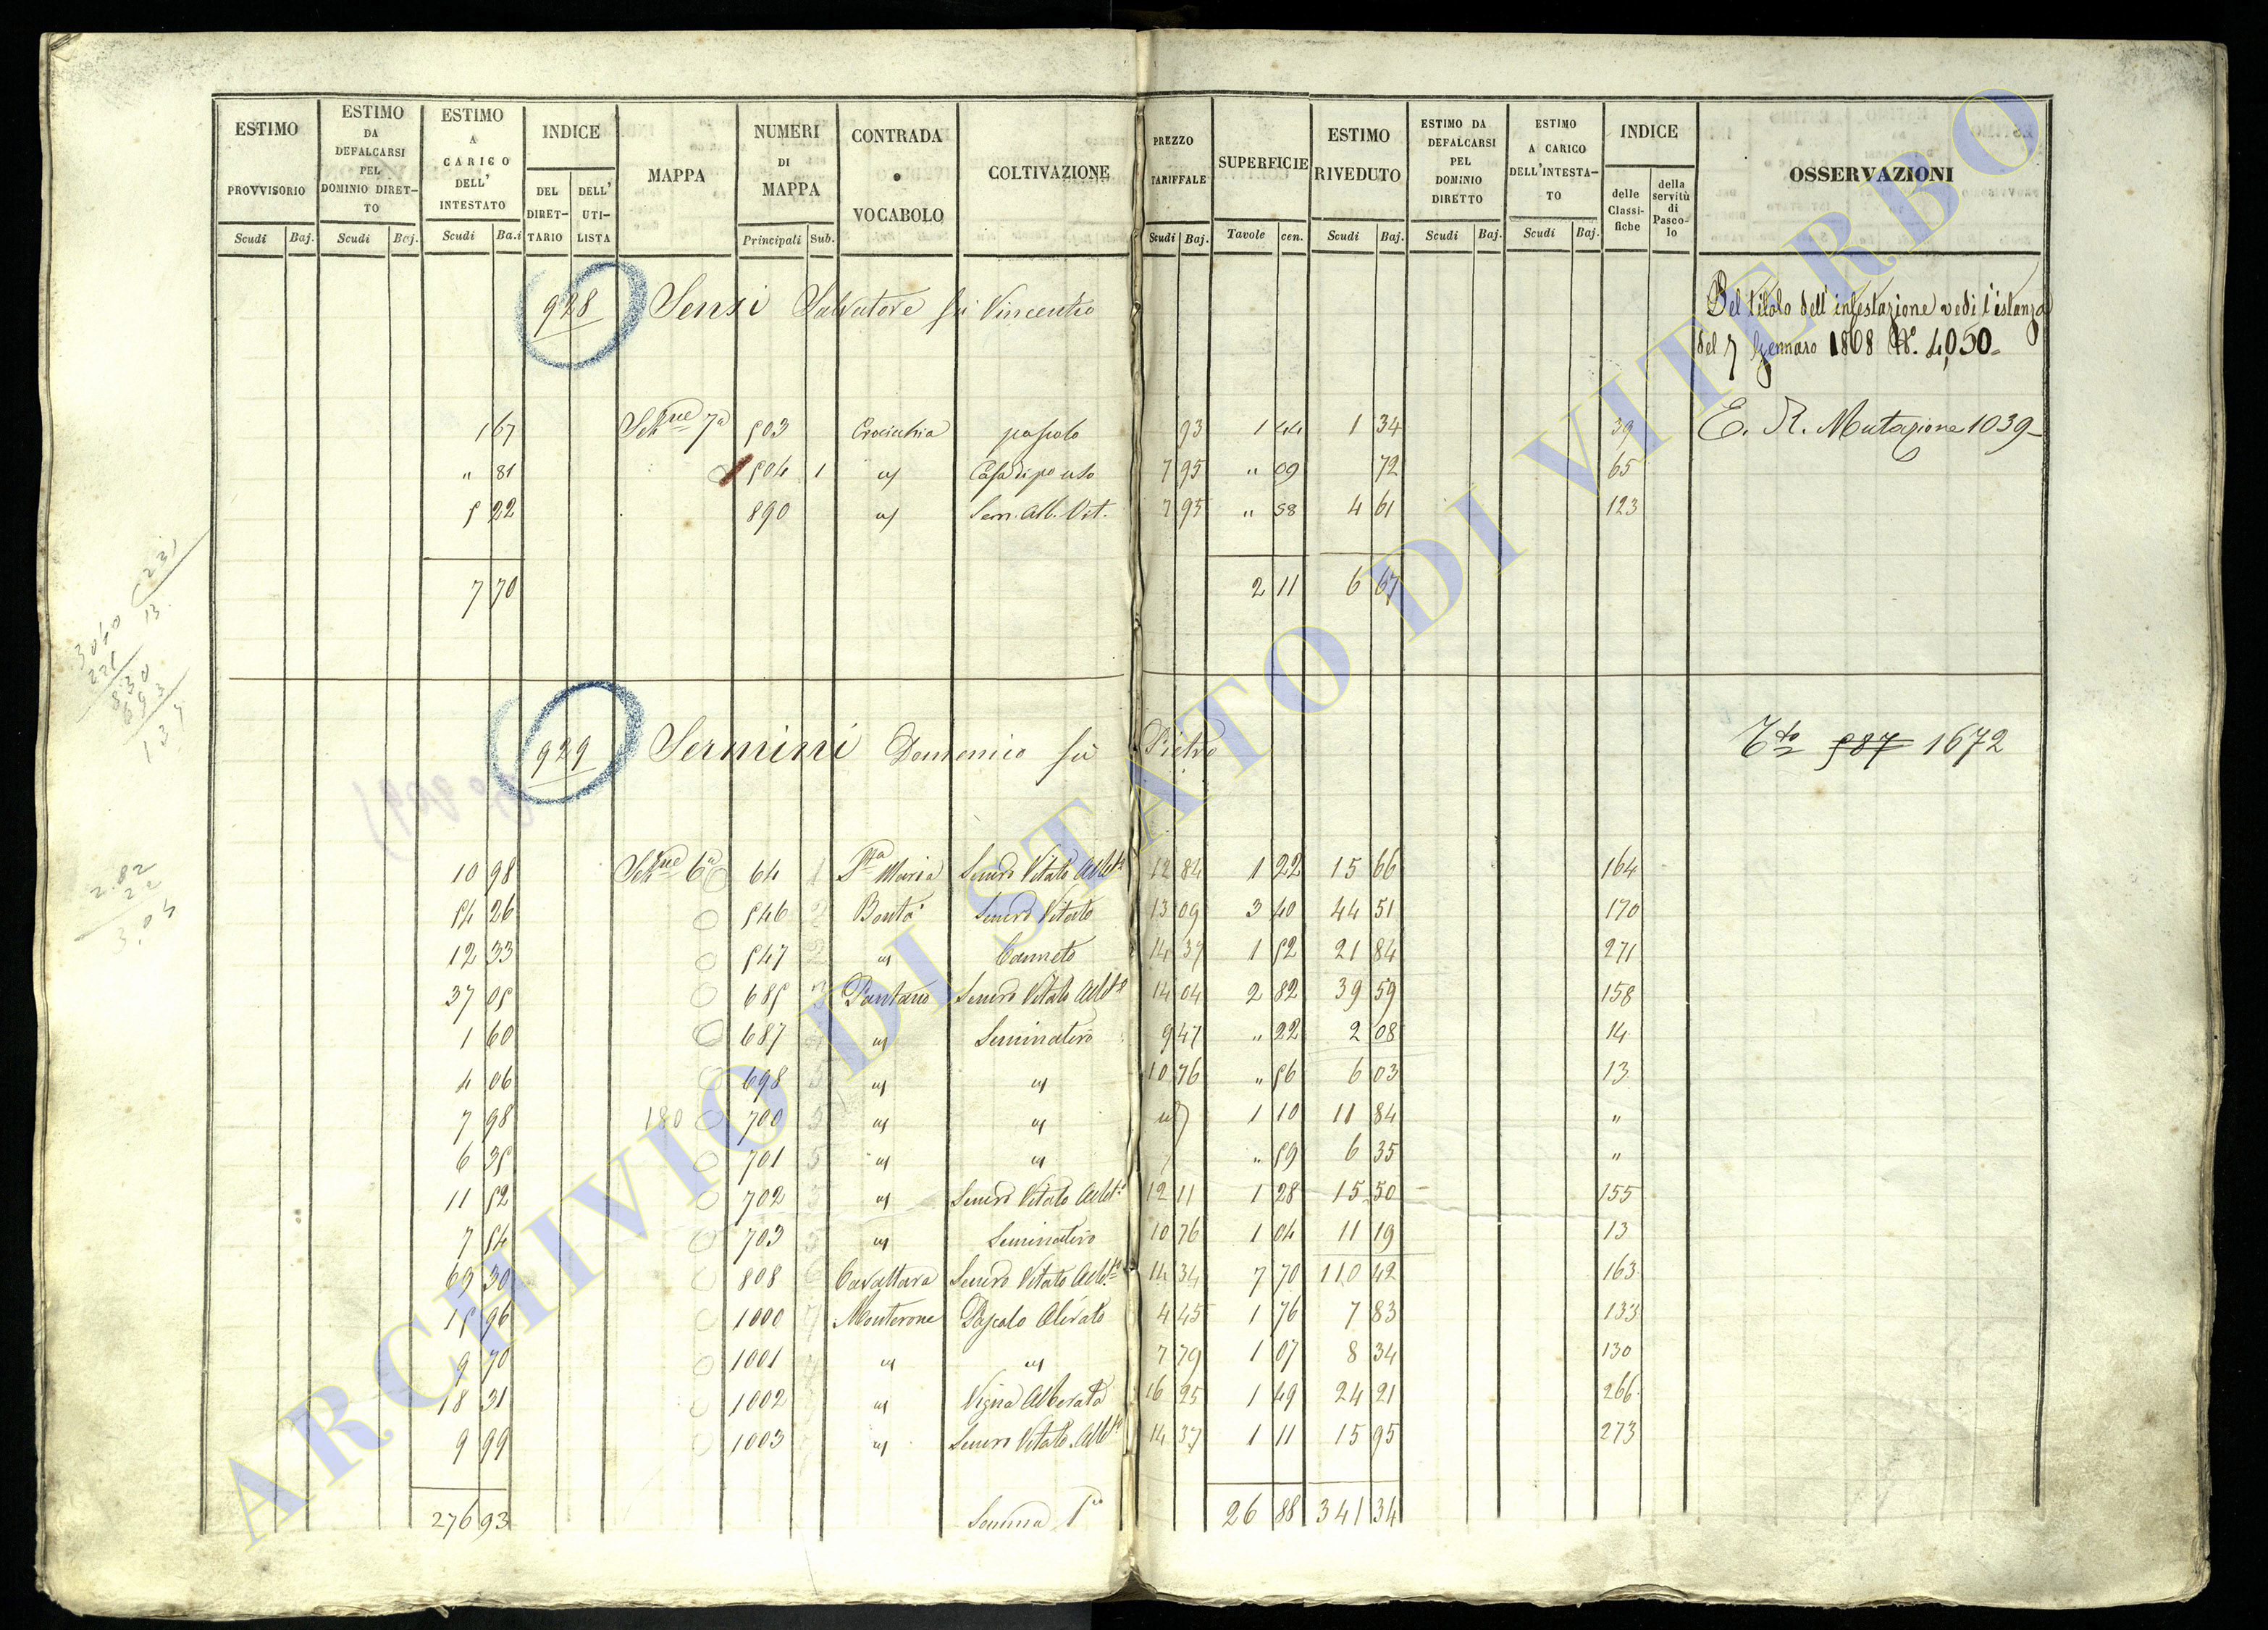 ESTIMO PROVVISORIO Scudi Baj.
ESTIMO DA DEFALCARSI PEL DOMINIO DIRETTO Scudi Baj.
ESTIMO A CARICO DELL' INTESTATO Scudi Baj.
INDICE DEL DIRETTARIO DELL' UTILISTA
MAPPA
NUMERI DI MAPPA Principali Sub.
CONTRADA o VOCABOLO
COLTIVAZIONE
PREZZO TARIFFALE Scudi Baj.
SUPERFICIE Tavole cen.
ESTIMO RIVEDUTO Scudi Baj.
ESTIMO DA DEFALCARSI PEL DOMINIO DIRETTO Scudi Baj.
ESTIMO A CARICO DELL'INTESTATO Scudi Baj.
INDICE delle Classifiche della servitù di Pascolo
OSSERVAZIONI
928 Sensi Salvatore fu Vincenzio
Del titolo dell'intestazione vedi l'istanza
del 7 Gennaro 1868 N.º 4,050
1 67 Sez.ne 7a 503 Crocicchia pascolo 93 1 44 1 34 39 E. R. Mutazione 1039
" 81 504 1 Casa di po uso 7 95 " 09 72 65
5 22 890 Sem. Alb. Vit. 7 95 " 58 4 61 123
7 70 2 11 6 67
929 Sermini Domenico fu Pietro 587 1672
10 98 Sez.ne 6a 64 Sta Maria Semvo Vitato Albto 12 84 1 22 15 66 164
54 26 546 Bontà Semvo Vitato 13 09 3 40 44 51 170
12 33 547 Canneto 14 37 1 52 21 84 271
37 05 685 Pantano Semvo Vitato Albto 14 04 2 82 39 59 158
1 60 687 Seminativo 9 47 " 22 2 08 14
4 06 698 10 76 " 56 6 03 13
7 98 180 700 1 10 11 84 "
6 35 701 " 59 6 35 "
11 52 702 Semvo Vitato Albto 12 11 1 28 15 50 155
7 54 703 Seminativo 10 76 1 04 11 19 13
69 30 808 Cavallara Semvo Vitato Albto 14 34 7 70 110 42 163
15 96 1000 Monterone Pascolo Olivato 4 45 1 76 7 83 133
9 70 1001 7 79 1 07 8 34 130
18 31 1002 Vigna Alberata 16 25 1 49 24 21 266
9 99 1003 Semvo Vitato Albto 14 37 1 11 15 95 273
276 93 Somma 1a 26 88 341 34
ARCHIVIO DI STATO DI VITERBO